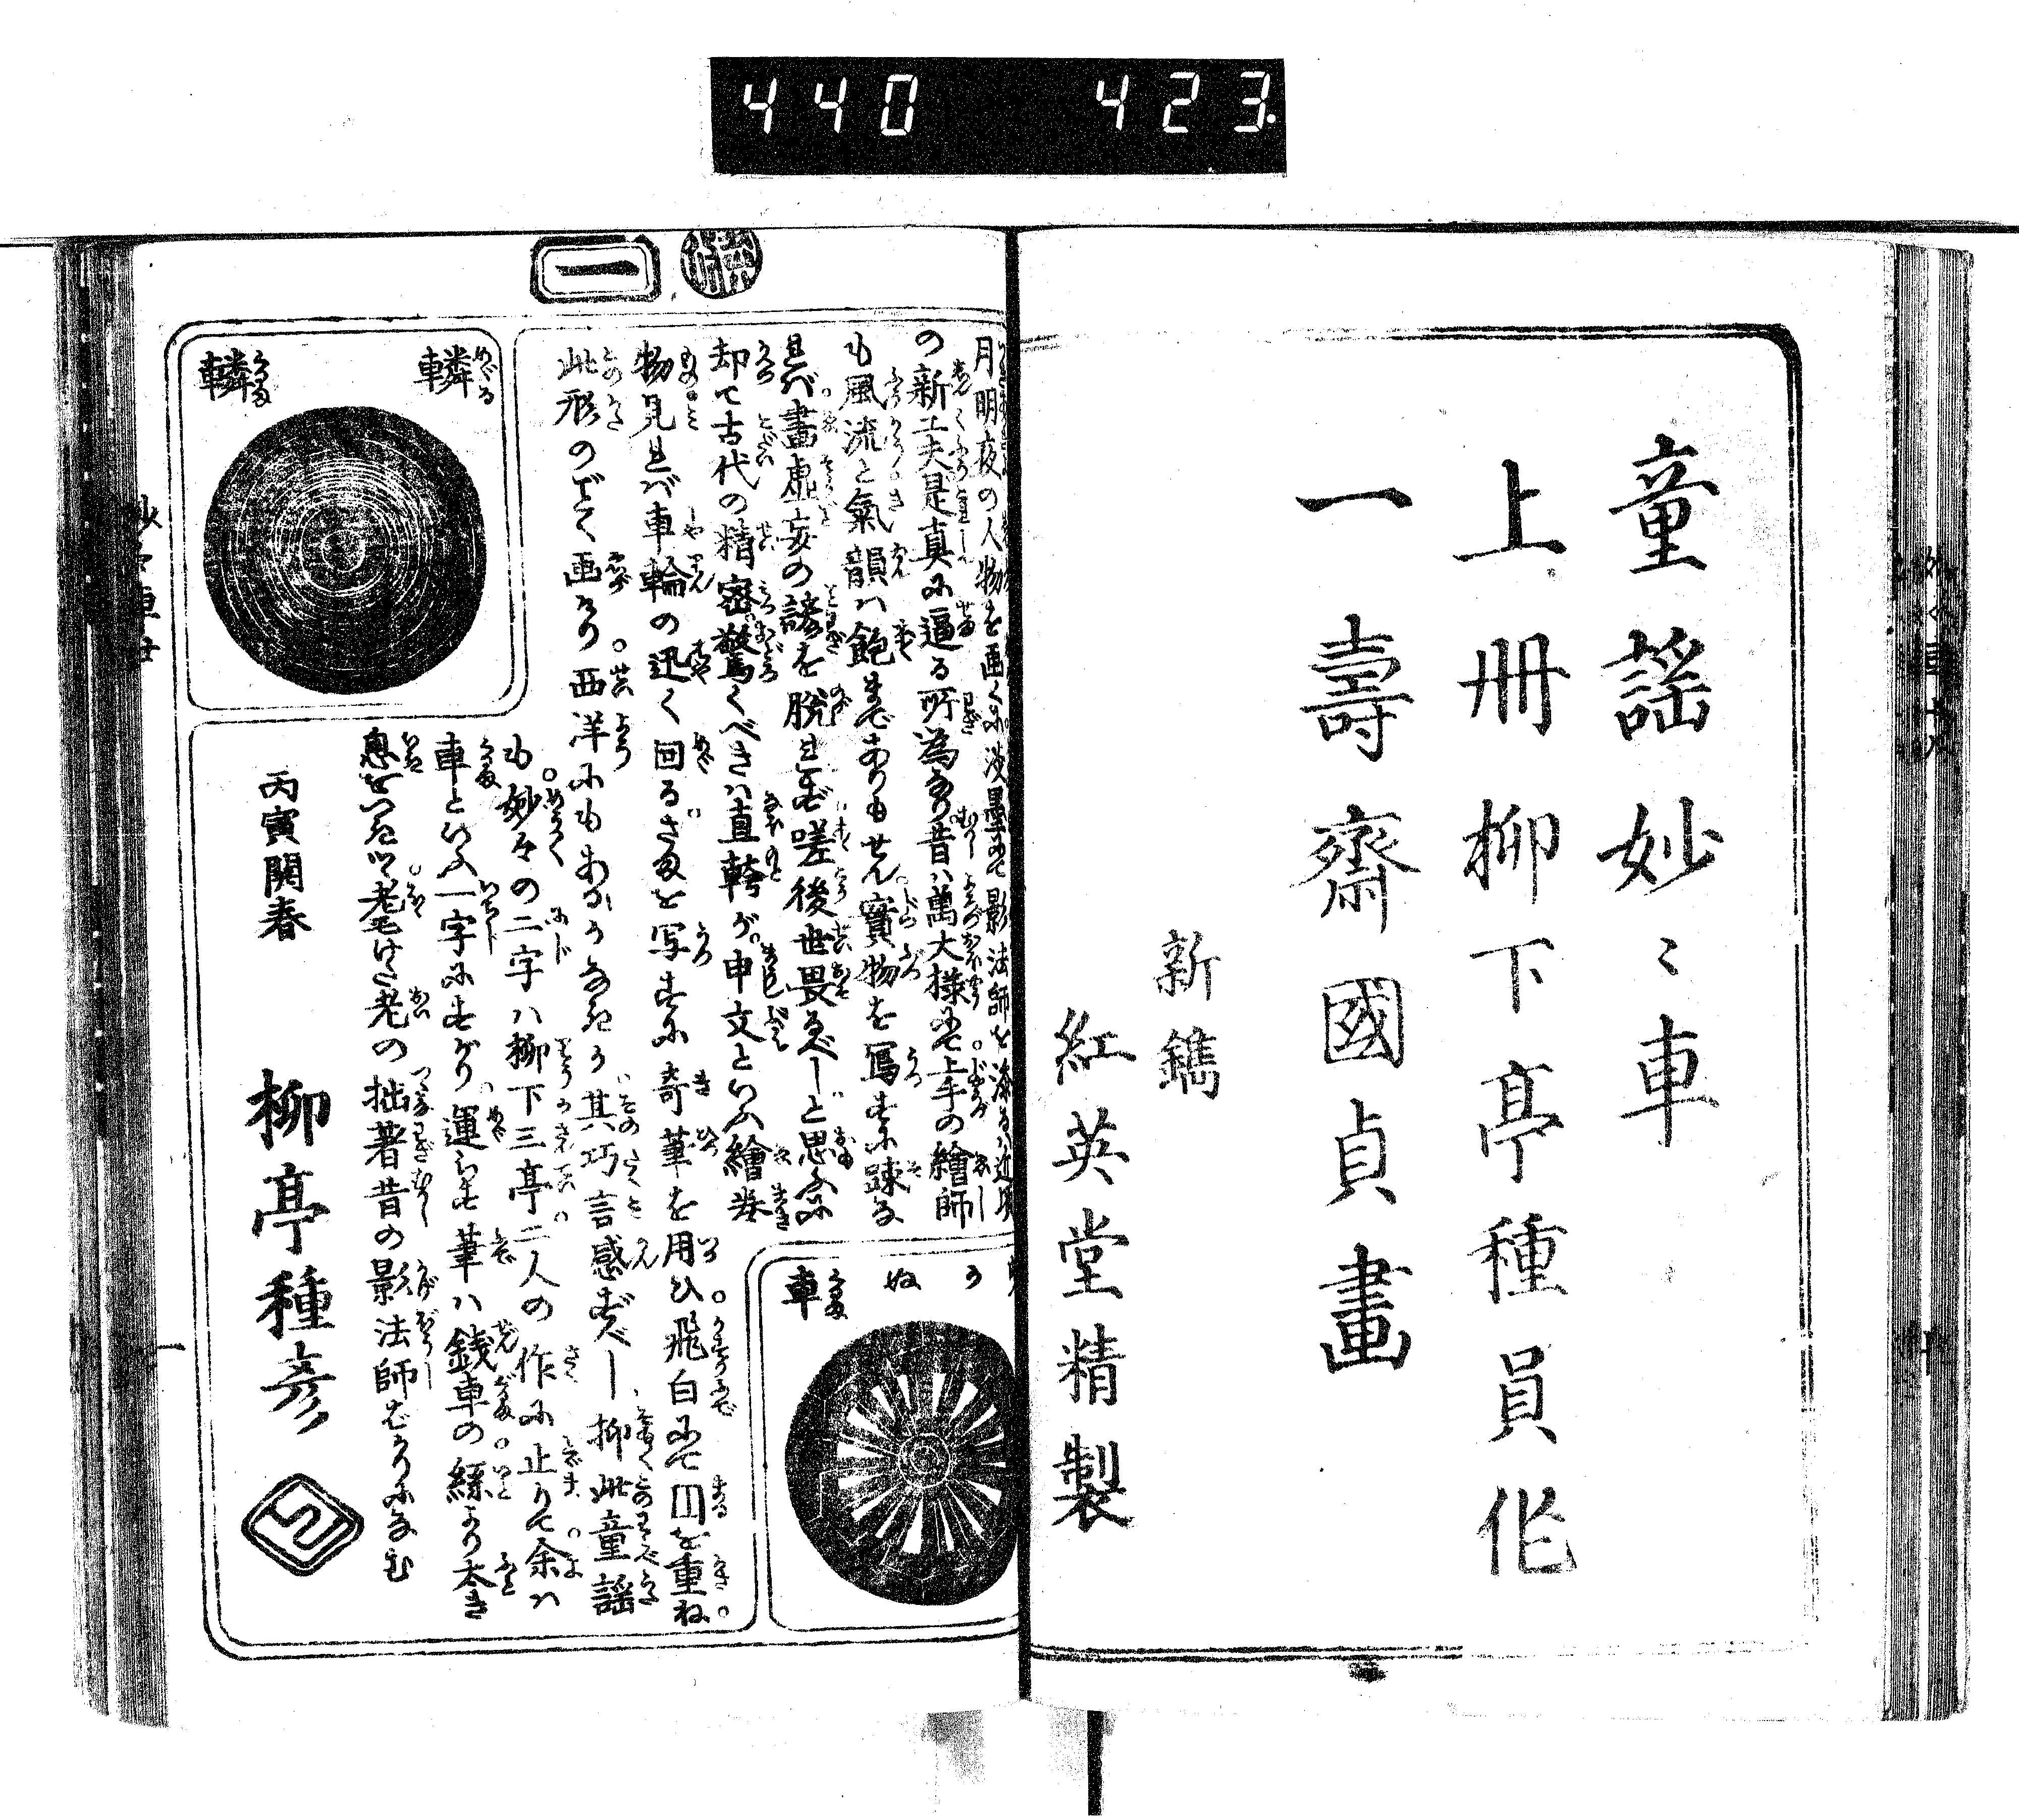 440 423.
童謡妙〻車
上冊柳下亭種員作
一壽齋國貞畫
新鐫
紅英堂精製
一
月明夜の人物を画くに淡墨にて影法師を添るハ近頃
の新工夫是真に逼る所為なり昔ハ萬大様にて上手の繪師
も風流と氣韻ハ飽までありもせん實物を寫すに踈な
れバ畫虚妄の謗を脱れず嗟後世畏るべしと思ふに
却て古代の精密驚くべきハ直幹が申文といふ繪巻
物見れバ車輪の迅く回るさまを写すに奇筆を用ひ飛白にて円を重ね
此形のごとく画けり西洋にもあるかなきか其巧言感ずべし抑此童謡
も妙々の二字ハ柳下三亭二人の作に止りて余ハ
車といふ一字にすがり運らす筆ハ銭車の絲より太き
息をつきつゝ老毛けた老の拙著昔の影法師ばかりになむ
轔
轔
車
丙寅開春
柳亭種彦